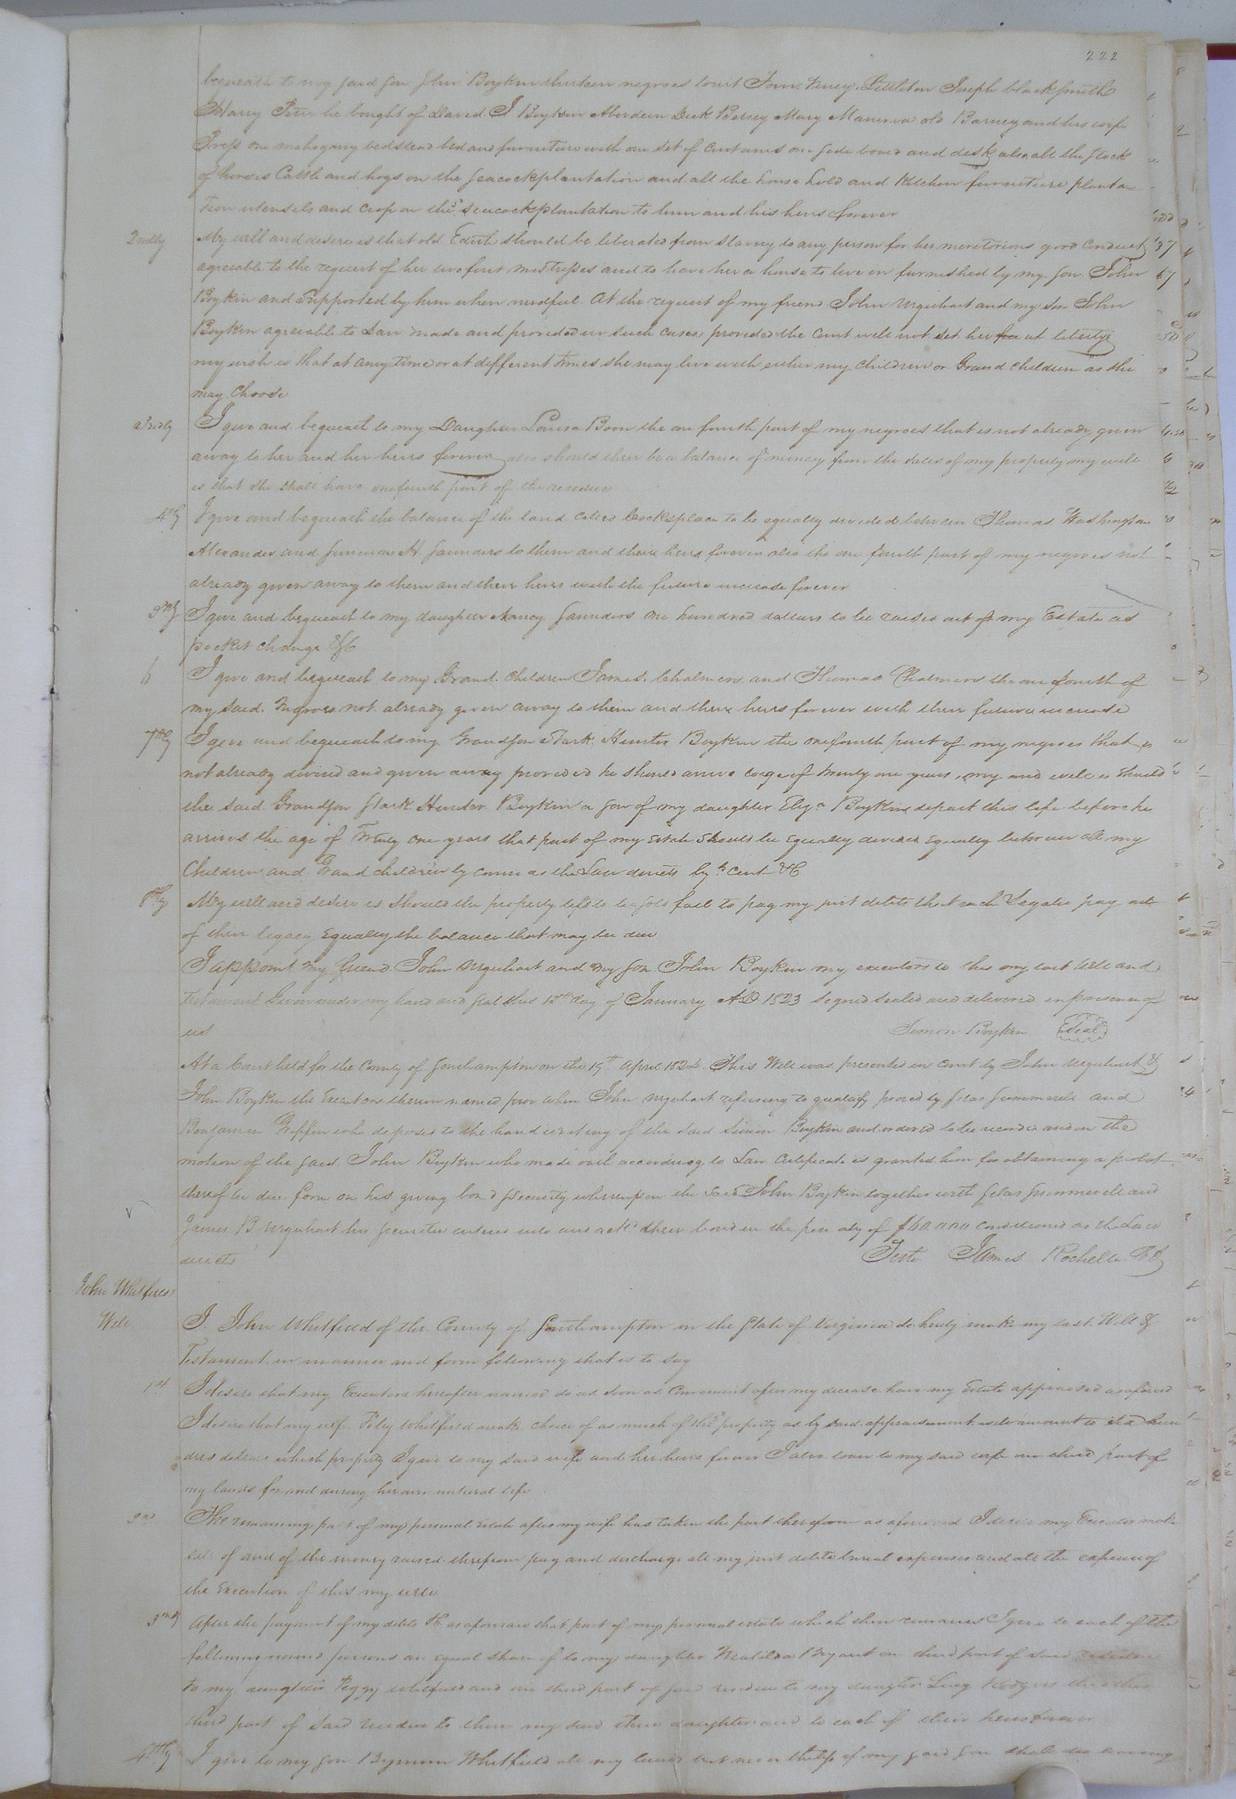 222
bequeath to my said son John Boykin thirteen negroes to wit Tom Lewey Littleton Joseph blacksmith
Harry Peter he bought of David J Boykin Aberdeen Dick Betsey Mary Manerva old Barney and his wife
one mahogany bedstead bed and furniture with one set of curtains one side board and desk also all the stock
of horses Cattle and hogs on the seacock plantation and all the house hold and kitchen furniture planta
tion utensils and crop on the seacock plantation to him and his heirs forever
2ndly My will and desire is that old Edith should be liberated from slavery to any person for her meritorious good conduct
agreeable to the request of her two first mistresses and to have her a house to live in furnished by my son John
Boykin and supported by him when needful At the request of my friend John Urquhart and my son John
Boykin agreeable to Law made and provided in such cases provided the Court will not set her free at liberty
my wish is that at any time or at different times she may live with either my children or Grand children as she
may Choose
3rdly I give and bequeath to my Daughter Louisa Boon the one fourth part of my negroes that is not already given
away to her and her heirs forever also should there be a balance of money from the sales of my property my will
is that she shall have one fourth part of the residue
4thly I give and bequeath the balance of the land called place to be equally divided between Thomas Washington
Alexander and H. Saunders to them and their heirs forever also the one fourth part of my negroes not
already given away to them and their heirs with the future increase forever
5thly I give and bequeath to my daughter Nancy Saunders one hundred dollars to be raised out of my Estate as
pocket change &c
6 I give and bequeath to my Grand children James Chalmers and Thomas Chalmers the one fourth of
my said Negroes not already given away to them and their heirs forever with their future increase
7thly I give and bequeath to my Grandson Stark Hunter Boykin the one fourth part of my negroes that is
not already devised and given away provided he should arrive to age of twenty one years, my and will is should
the said Grandson Stark Hunter Boykin a son of my daughter Eliza Boykin depart this life before he
arrives the age of Twenty One years that part of my Estate should be Equally divided Equally between all my
Children and Grand children by as the Law directs by Court &C
8thly My will and desire is should the property left to be sold fail to pay my just debts that each Legatee pay out
of their legacy Equally the balance that may be due
I appoint my friend John Urquhart and my son John Boykin my executors to this my last Will and
Testament Given under my hand and seal this day of January AD 1823 Signed sealed and delivered in presence of
us
Simon Boykin Seal
At a Court held for the County of Southampton on the 19th April 1824 This Will was presented in Court by John Urquhart &
John Boykin the Executors therein named John Urquhart refusing to qualify proved by Silas Summerell and
Benjamin Griffin who deposes to the hand writing of the said Simon Boykin and ordered to be recorded and on the
motion of the said John Boykin who made oath according to Law Certificate is granted him for obtaining a probat
thereof in due form on his giving bond & security whereupon the said John Boykin together with Silas Summerell and
James B Urquhart his securities entered into and ackd their bond in the penalty of $60.000 conditioned as the Law
directs
Teste James Rochelle CC
John Whitfields
Will
I. John Whitfield of the County of Southampton in the State of Virginia do hereby make my last Will &
Testament in manner and form following that is to say
1st I desire that my Executors hereafter named do as soon as Convenient after my decease have my Estate appraised as aforesaid
I desire that my wife Polly Whitfield make choice of as much of the property as by said appraisement will amount to hun
dred dollars which property I give to my said wife and her heirs forever I also loan to my said wife one third part of
my lands for and during her own natural life
2nd The remaining part of my personal estate after my wife has taken the part therefrom as aforesaid I desire my Executor make
sale of and of the money raised therefrom pay and discharge all my just debts burial expenses and all the expense of
the Execution of this my will
3rdly After the payment of my debts &c as aforesaid that part of my personal estate which then remains I give to each of the
following named persons an equal share of to my daughter Matilda Bryant one third part of said residue
to my daughter Peggy Whitfield one third part of said residue to my daughter Lucy the other
third part of said residue to them my said three daughters and to each of their heirs forever
4thly I give to my son Benjamin Whitfield all my lands but never my said son shall die leaving